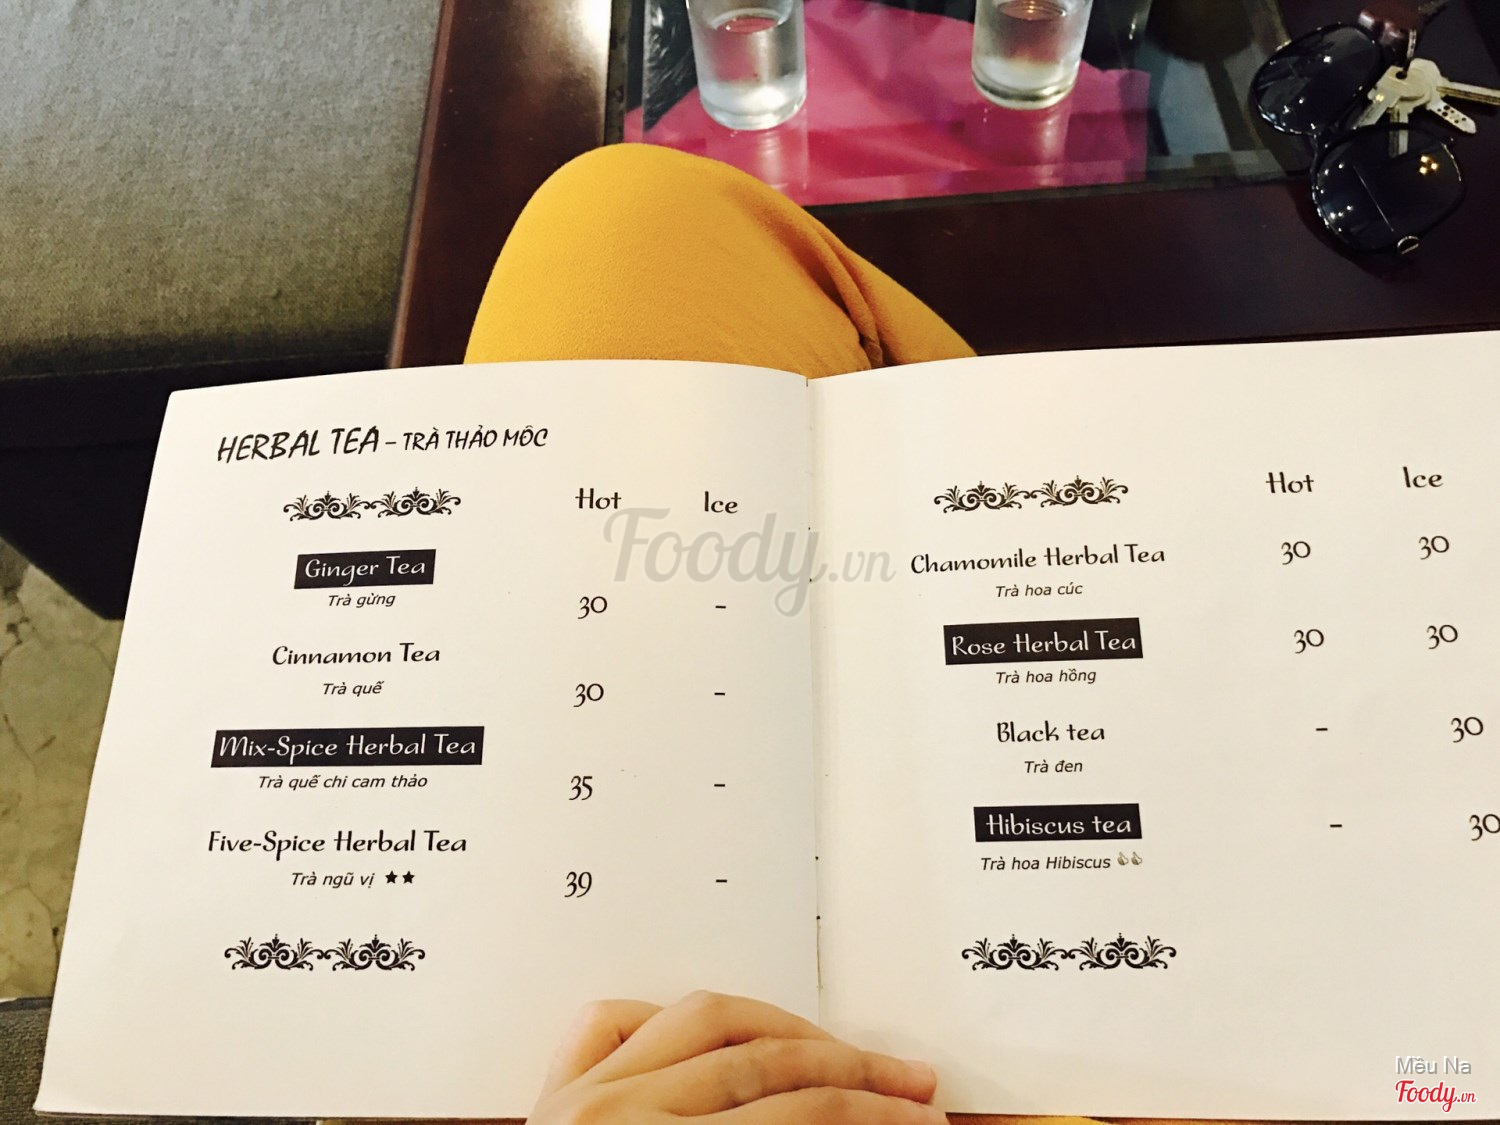 HERBAL TEA – TRÀ THẢO MÔC
Hot Ice
Ginger Tea
Trà gừng
30 –
Cinnamon Tea
Trà quế
30 –
Mix-Spice Herbal Tea
Trà quế chi cam thảo
35 –
Five-Spice Herbal Tea
Trà ngũ vị ★★
39 –
Hot Ice
Chamomile Herbal Tea 30 30
Trà hoa cúc
Rose Herbal Tea 30 30
Trà hoa hồng
Black tea – 30
Trà đen
Hibiscus tea – 30
Trà hoa Hibiscus 👍👍
Foody.vn
Mều Na
Foody.vn